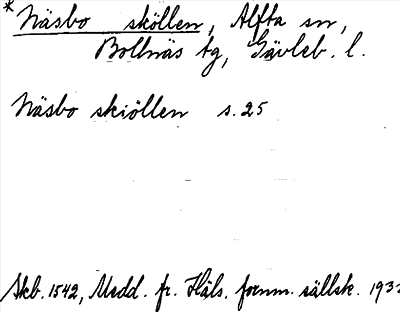 * Näsbo sköllen, Alfta sn,
Bollnäs tg, Gävleb. l.
Näsbo skiöllen s. 25
Skb. 1542, Medd. fr. Häls. fornm. sällsk.